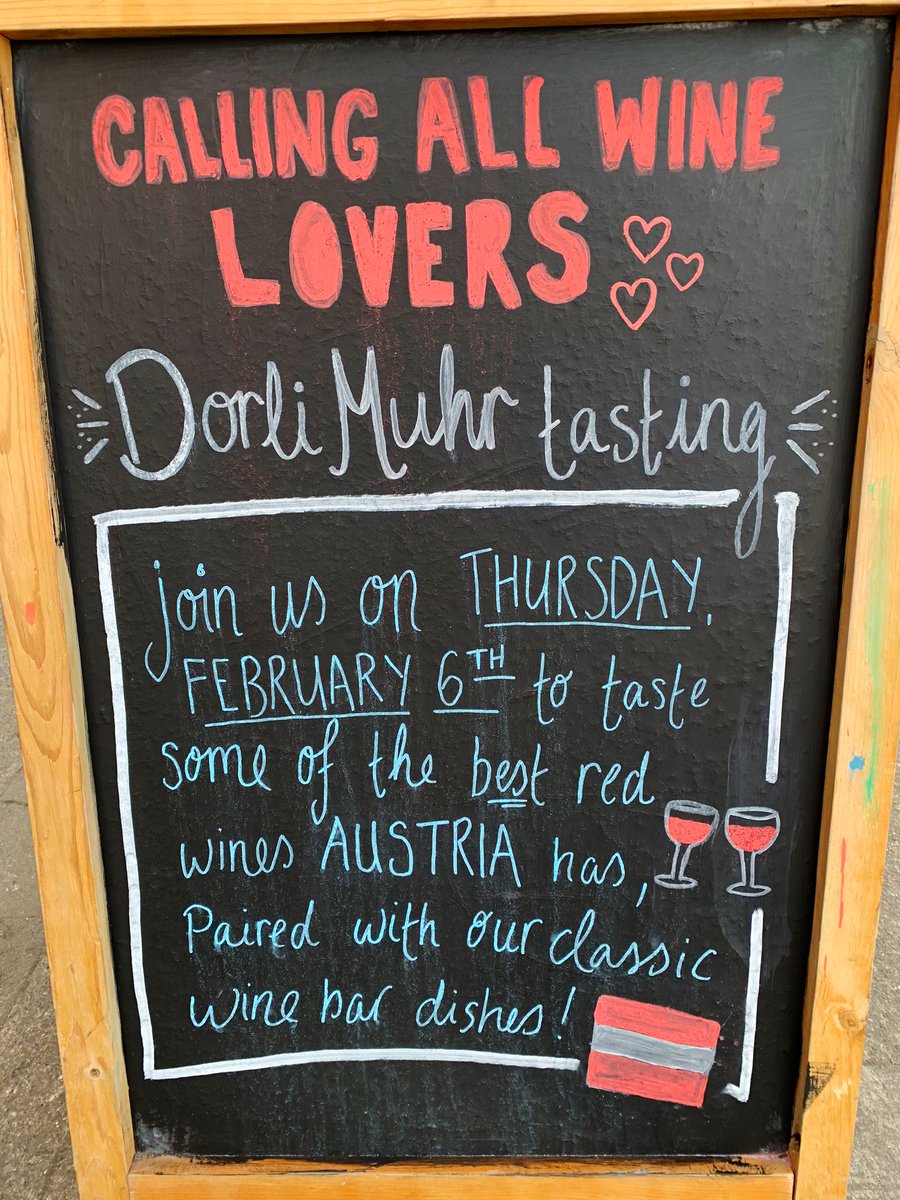 CALLING ALL WINE
LOVERS
Dorli Muhr tasting
join us on THURSDAY.
FEBRUARY 6TH to taste
some of the best red
wines AUSTRIA has,
Paired with our classic
wine bar dishes!